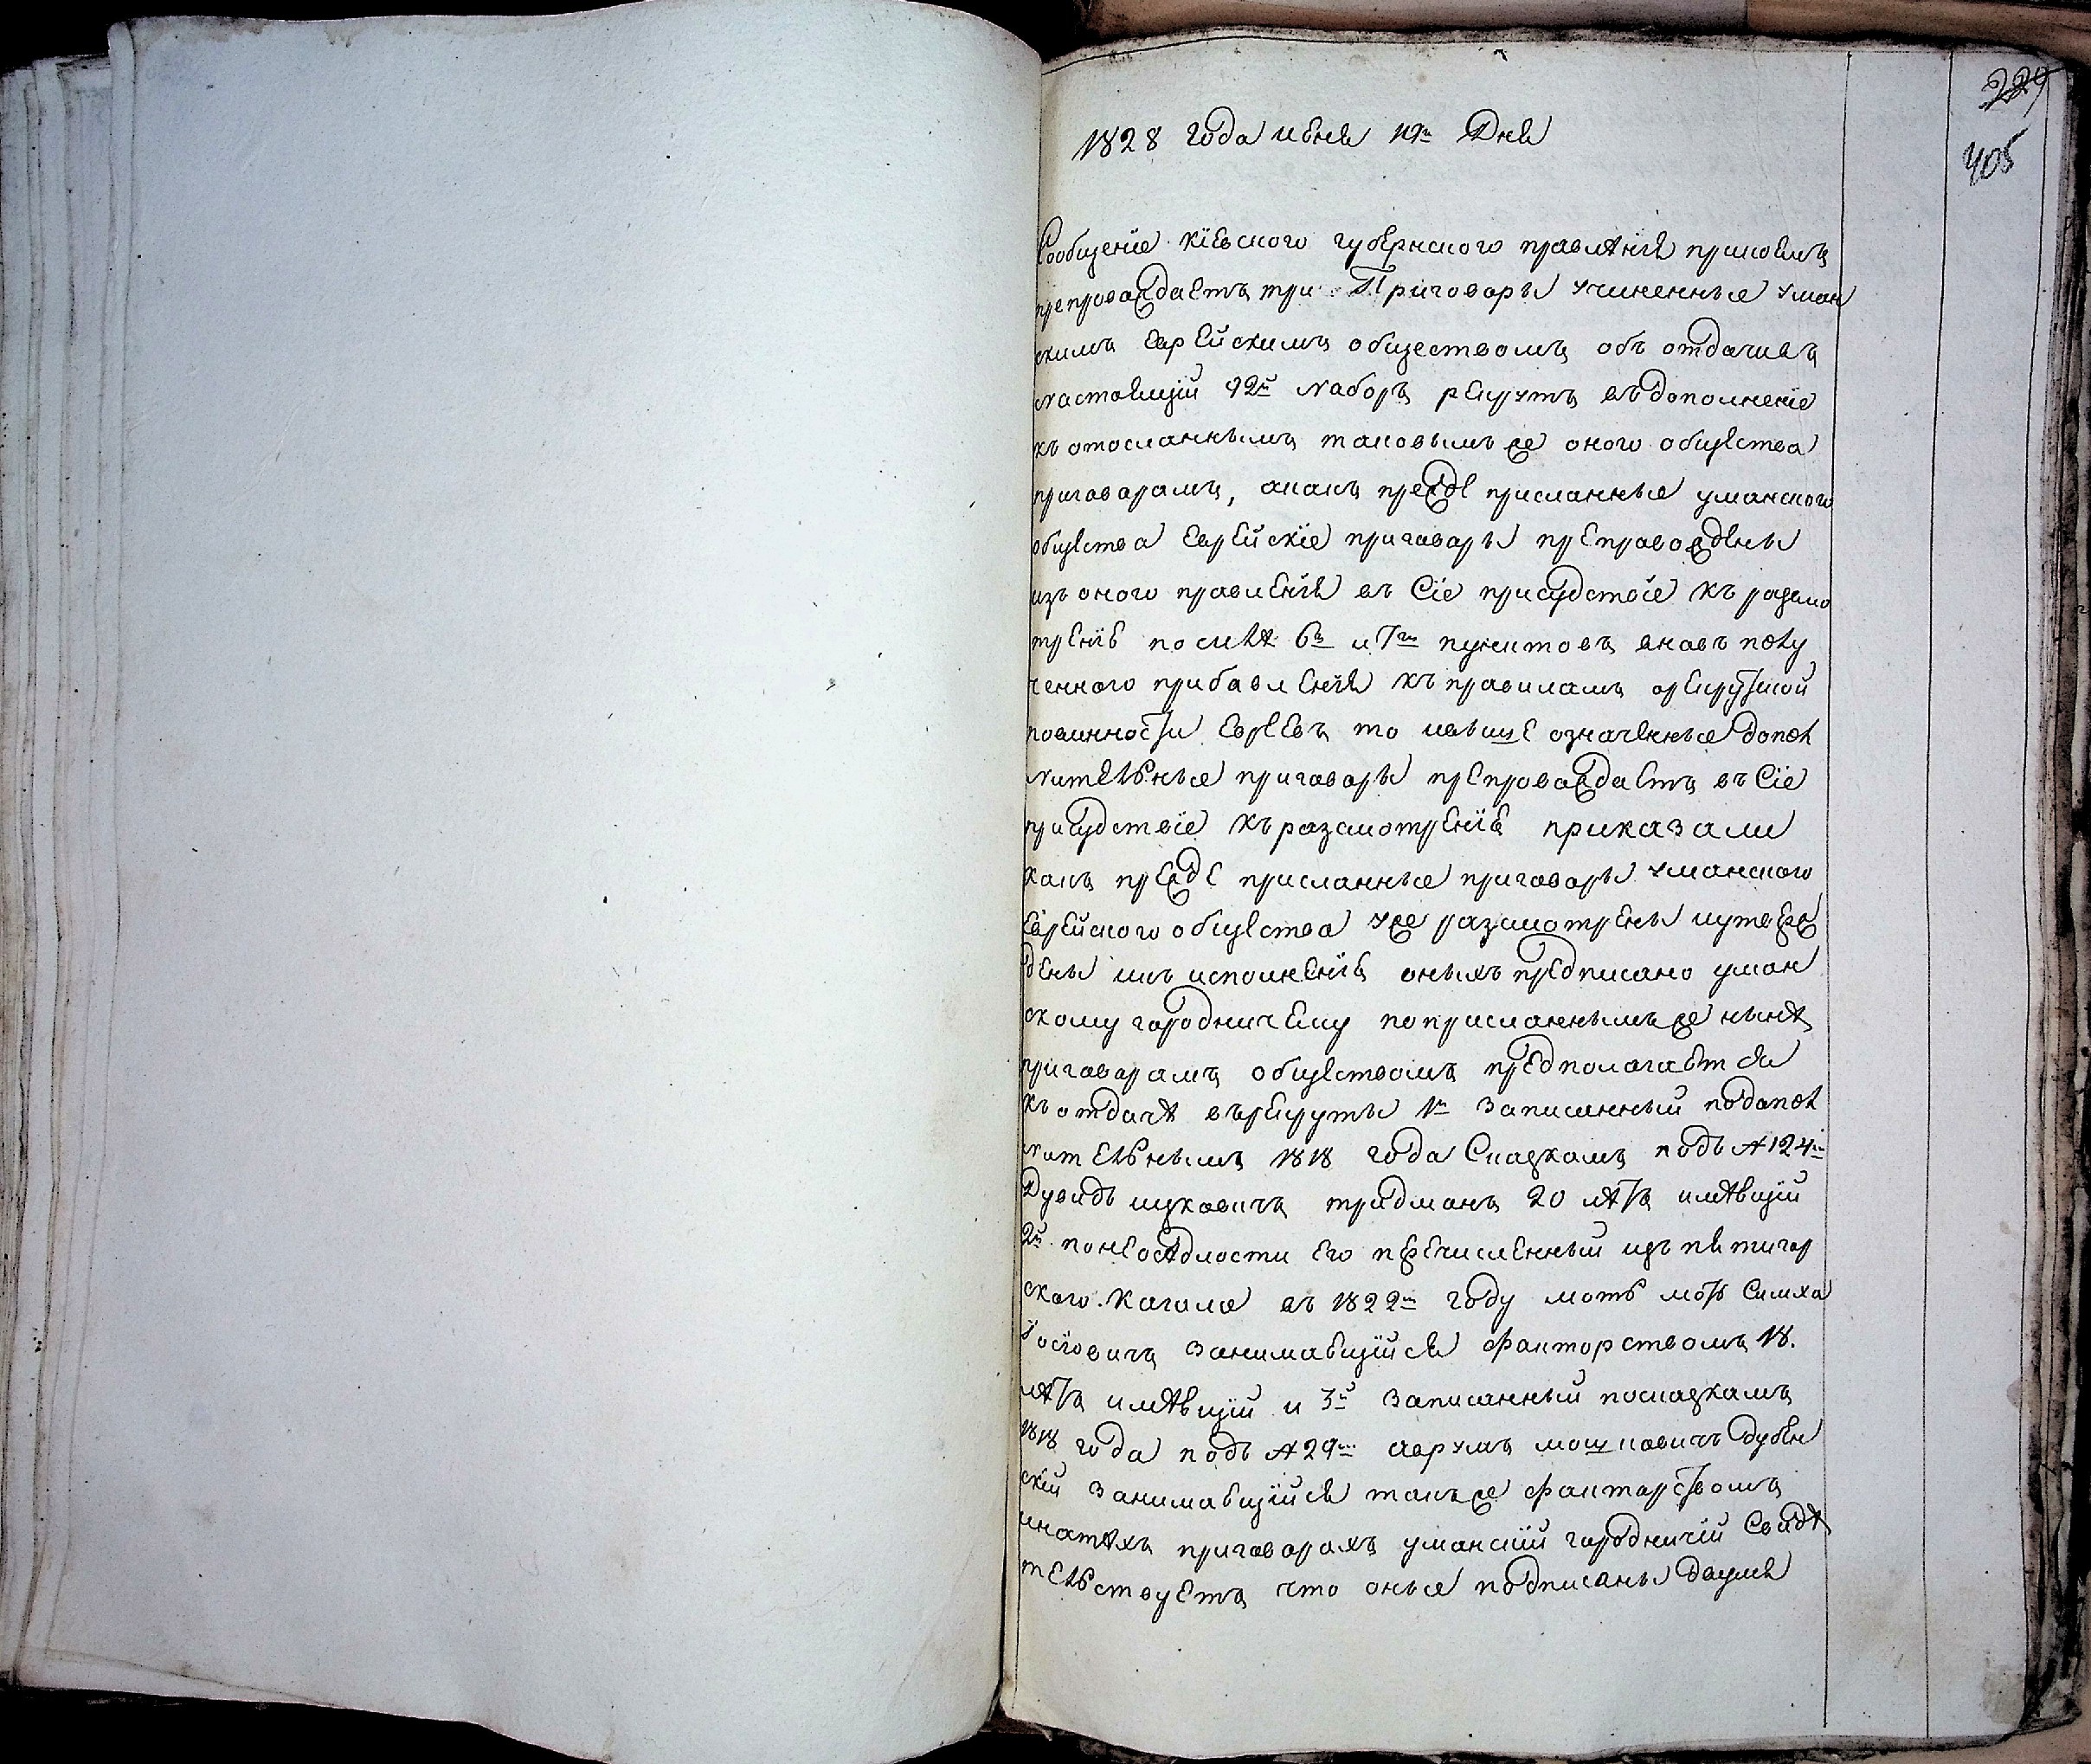 229
405
1828 года июня 19го Дня
Сообщеніе кіевского губернского правленія приконмъ
препровождаетъ три Приговоры учиненные уман
скимъ еврейскимъ обществомъ объ отдачи въ
настоящій 92й наборъ рекрутъ въ дополненіе
къ отосланнымъ таковымъ же оного общества
приговорамъ, а какъ прежде присланные уманского
общества еврейскіе приговоры препровождены
изъ оного правленія въ Сіе присудствіе къ разсмо
тренію по силѣ 6го и 7го пунктовъ вновь полу
ченного прибавленія къ правиламъ о рекрутской
повинности евреевъ то и выше означенные допол
нительные приговоры препровождаетъ въ Сіе
присудствіе къ разсмотренію приказали
какъ прежде присланные приговоры уманского
еврейского общества уже разсмотрены и утверж
дены и къ исполненію оныхъ предписано уман
скому городничему по присланнымъ же нынѣ
приговорамъ обществомъ предполагается
къ отдачѣ въ рекруты 1й записанный по допол
нительнымъ 1818 года Сказкамъ подъ № 124м
Дувидъ ицковичъ тридманъ 20 лѣтъ имѣющій
2й по неосѣдлости его перечисленный изъ пятигор
ского кагала въ 1822м году моть Симха
іосіовичъ занимающійся факторствомъ 18.
лѣтъ имѣющій и 3й записанный по сказкамъ
1818 года подъ № 29м аврумъ мошковичъ дубен
скій занимающійся такъ же факторствомъ
и на тѣхъ приговорахъ уманскій городничій Свидѣ
тельствуетъ что оные подписаны двумя